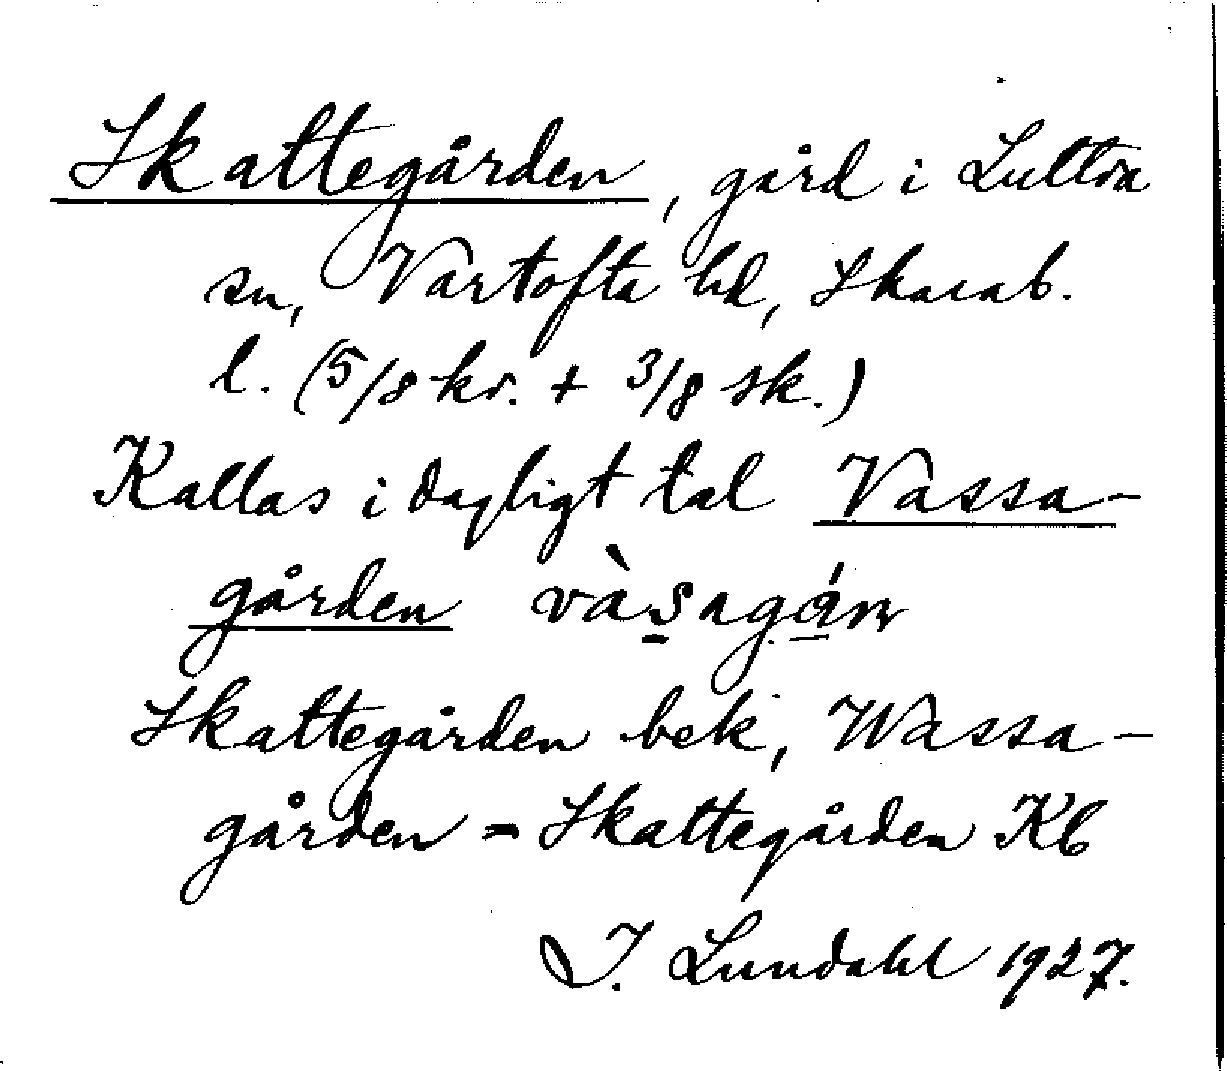 Skattegården, gård i Luttra
sn, Vartofta hd, Skarab.
l. (5/8 kr. + 3/8 sk.)
Kallas i dagligt tal Vassa-
gården
Skattegården bek, Wassa-
gården = Skattegården Kb
I. Lundahl 1927.